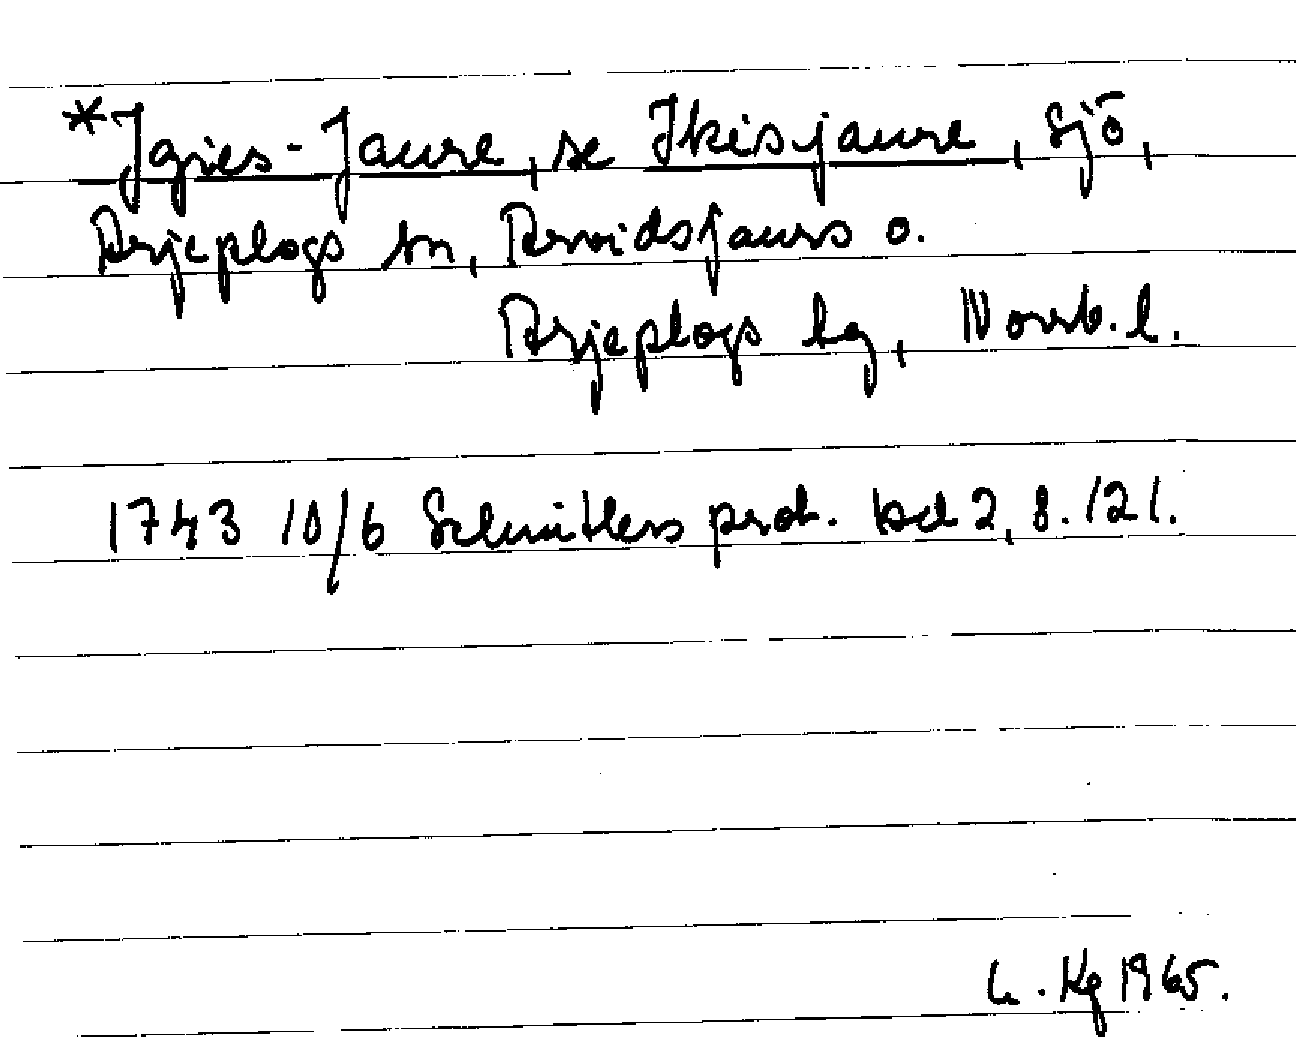 *Jgies-Jaure, se Ikisjaure, sjö,
Arjeplogs sn, Arvidsjaurs o.
Arjeplogs lg, Norrb. l.
1743 10/6 Schnitlers prot. bd 2, s. 121.
L. Kg 1965.